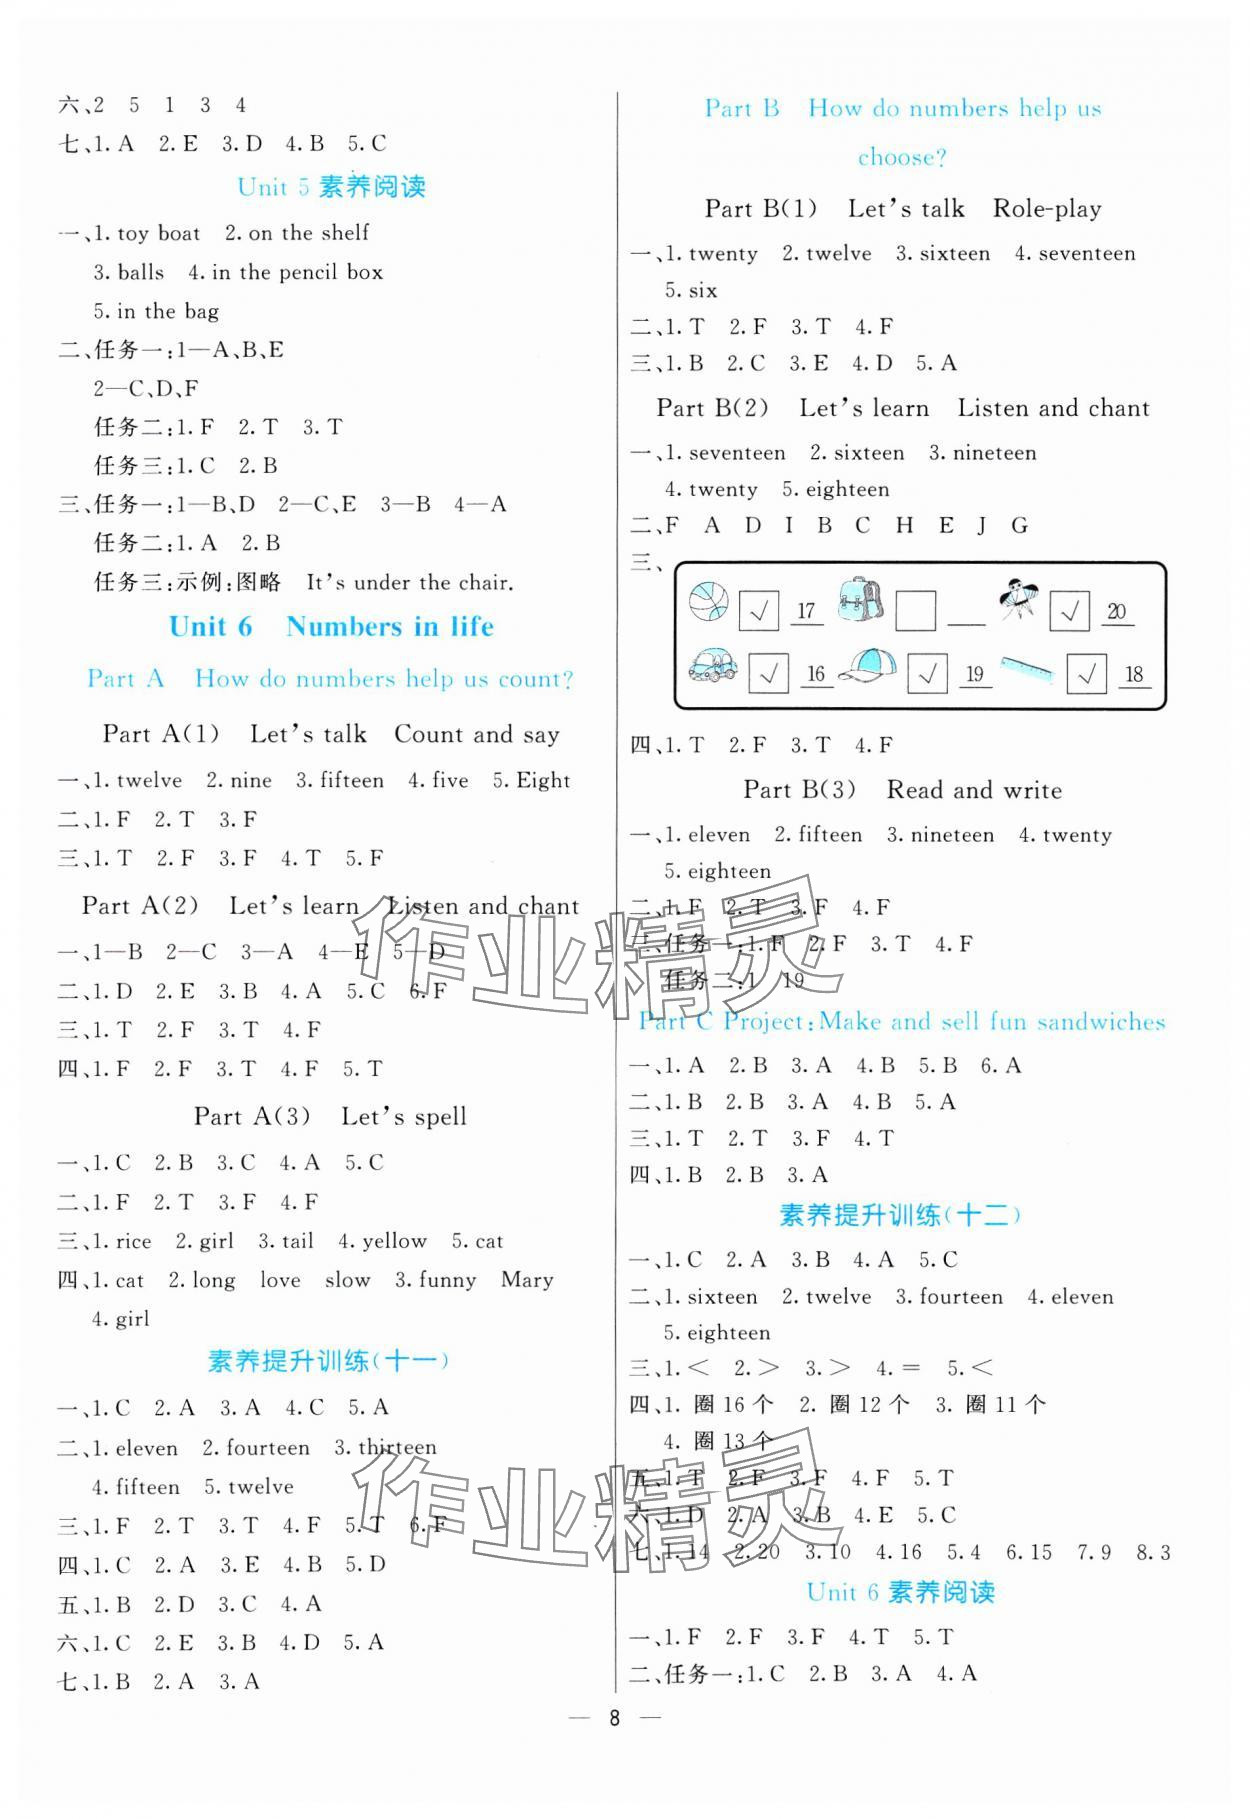 六、2 5 1 3 4
七、1. A 2. E 3. D 4. B 5. C
Unit 5 素养阅读
一、1. toy boat 2. on the shelf
3. balls 4. in the pencil box
5. in the bag
二、任务一:1—A、B、E
2—C、D、F
任务二:1. F 2. T 3. T
任务三:1. C 2. B
三、任务一:1—B、D 2—C、E 3—B 4—A
任务二:1. A 2. B
任务三:示例:图略 It's under the chair.
Unit 6 Numbers in life
Part A How do numbers help us count?
Part A(1) Let's talk Count and say
一、1. twelve 2. nine 3. fifteen 4. five 5. Eight
二、1. F 2. T 3. F
三、1. T 2. F 3. F 4. T 5. F
Part A(2) Let's learn Listen and chant
一、1—B 2—C 3—A 4—E 5—D
二、1. D 2. E 3. B 4. A 5. C 6. F
三、1. T 2. F 3. T 4. F
四、1. F 2. F 3. T 4. F 5. T
Part A(3) Let's spell
一、1. C 2. B 3. C 4. A 5. C
二、1. F 2. T 3. F 4. F
三、1. rice 2. girl 3. tail 4. yellow 5. cat
四、1. cat 2. long love slow 3. funny Mary
4. girl
素养提升训练(十一)
一、1. C 2. A 3. A 4. C 5. A
二、1. eleven 2. fourteen 3. thirteen
4. fifteen 5. twelve
三、1. F 2. T 3. T 4. F 5. T 6. F
四、1. C 2. A 3. E 4. B 5. D
五、1. B 2. D 3. C 4. A
六、1. C 2. E 3. B 4. D 5. A
七、1. B 2. A 3. A
Part B How do numbers help us
choose?
Part B(1) Let's talk Role-play
一、1. twenty 2. twelve 3. sixteen 4. seventeen
5. six
二、1. T 2. F 3. T 4. F
三、1. B 2. C 3. E 4. D 5. A
Part B(2) Let's learn Listen and chant
一、1. seventeen 2. sixteen 3. nineteen
4. twenty 5. eighteen
二、F A D I B C H E J G
三、
√ 17 √ 20
√ 16 √ 19 √ 18
四、1. T 2. F 3. T 4. F
Part B(3) Read and write
一、1. eleven 2. fifteen 3. nineteen 4. twenty
5. eighteen
二、1. F 2. T 3. F 4. F
三、任务一:1. F 2. F 3. T 4. F
任务二:1 19
Part C Project: Make and sell fun sandwiches
一、1. A 2. B 3. A 4. B 5. B 6. A
二、1. B 2. B 3. A 4. B 5. A
三、1. T 2. T 3. F 4. T
四、1. B 2. B 3. A
素养提升训练(十二)
一、1. C 2. A 3. B 4. A 5. C
二、1. sixteen 2. twelve 3. fourteen 4. eleven
5. eighteen
三、1. < 2. > 3. > 4. = 5. <
四、1. 圈16个 2. 圈12个 3. 圈11个
4. 圈13个
五、1. T 2. F 3. F 4. F 5. T
六、1. D 2. A 3. B 4. E 5. C
七、1. 14 2. 20 3. 10 4. 16 5. 4 6. 15 7. 9 8. 3
Unit 6 素养阅读
一、1. F 2. F 3. F 4. T 5. T
二、任务一:1. C 2. B 3. A 4. A
— 8 —
作业精灵
作业精灵